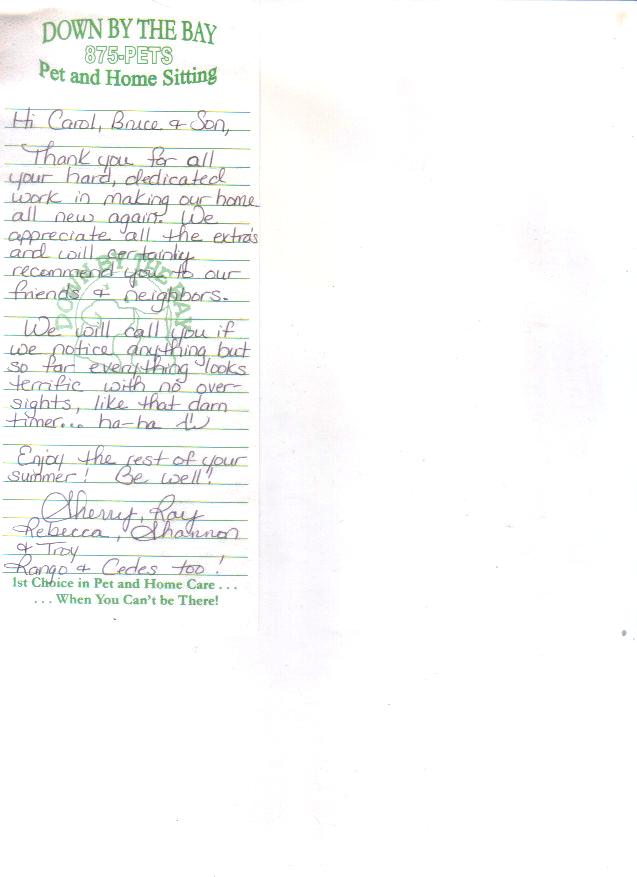 DOWN BY THE BAY
875-PETS
Pet and Home Sitting
Hi Carol, Bruce & Son,
Thank you for all
your hard, dedicated
work in making our home
all new again. We
appreciate all the extra's
and will certainly
recommend you to our
friends & neighbors.
DOWN BY THE BAY
We will call you if
we notice anything but
so far everything looks
terrific with no over-
sights, like that darn
timer... ha-ha
Enjoy the rest of your
summer! Be well!
Sherry, Ray
Rebecca, Shannon
& Troy
Rango & Cedes too!
1st Choice in Pet and Home Care . . .
. . . When You Can't be There!